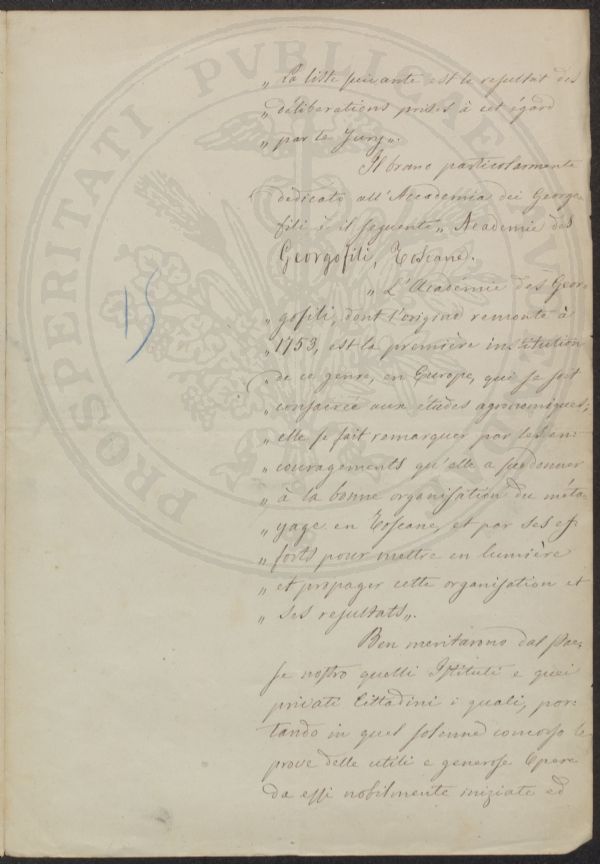 PROSPERITATI PVBLICAE AVGENDAE
„ La liste suivante est le resultat des
„ déliberations prises à cet égard
„ par le Jury „.
Il brano particolarmente
dedicato all'Accademia dei Georgo-
fili è il seguente „ Academie des
Georgofili, Toscane.
„ L'Académie des Geor-
„ gofili, dont l'origine remonte à
„ 1753, est la première institution
„ de ce genre, en Europe, qui se soit
„ consacrée aux études agronomiques;
„ elle se fait remarquer par les en-
„ couragements qu'elle a su donner
„ à la bonne organisation du méta-
„ yage en Toscane, et par ses ef-
„ forts pour mettre en lumière
„ et propager cette organisation et
„ ses resultats „.
Ben meritarono dal Pae-
se nostro quelli Istituti e quei
privati Cittadini i quali, por-
tando in quel solenne concorso le
prove delle utili e generose Opere
da essi nobilmente iniziate ed
15